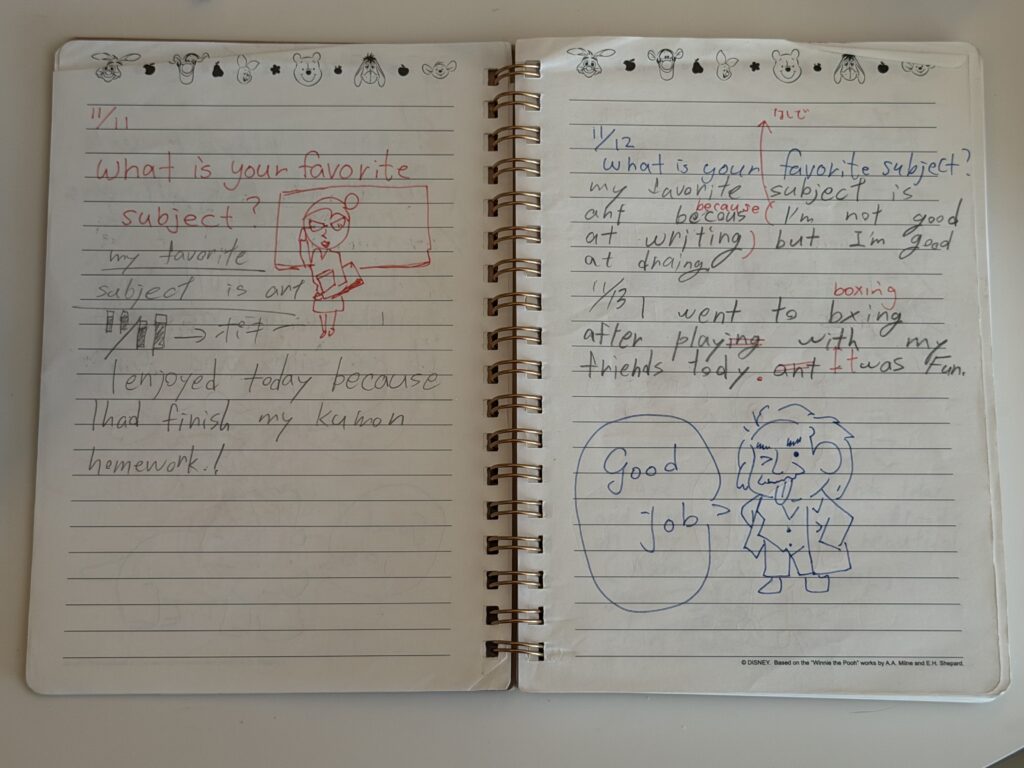 11/11
What is your favorite
subject?
my favorite
subject is art
→ ポッキー
I enjoyed today because
I had finish my kumon
homework.!
なしで
11/12
what is your favorite subject?
my favorite subject is
because
art becous (I'm not good
at writing) but I'm good
at draing
11/13
boxing
I went to bxing
after playing with my
friends today. ant It was Fun.
Good
job
© DISNEY. Based on the "Winnie the Pooh" works by A.A. Milne and E.H. Shepard.